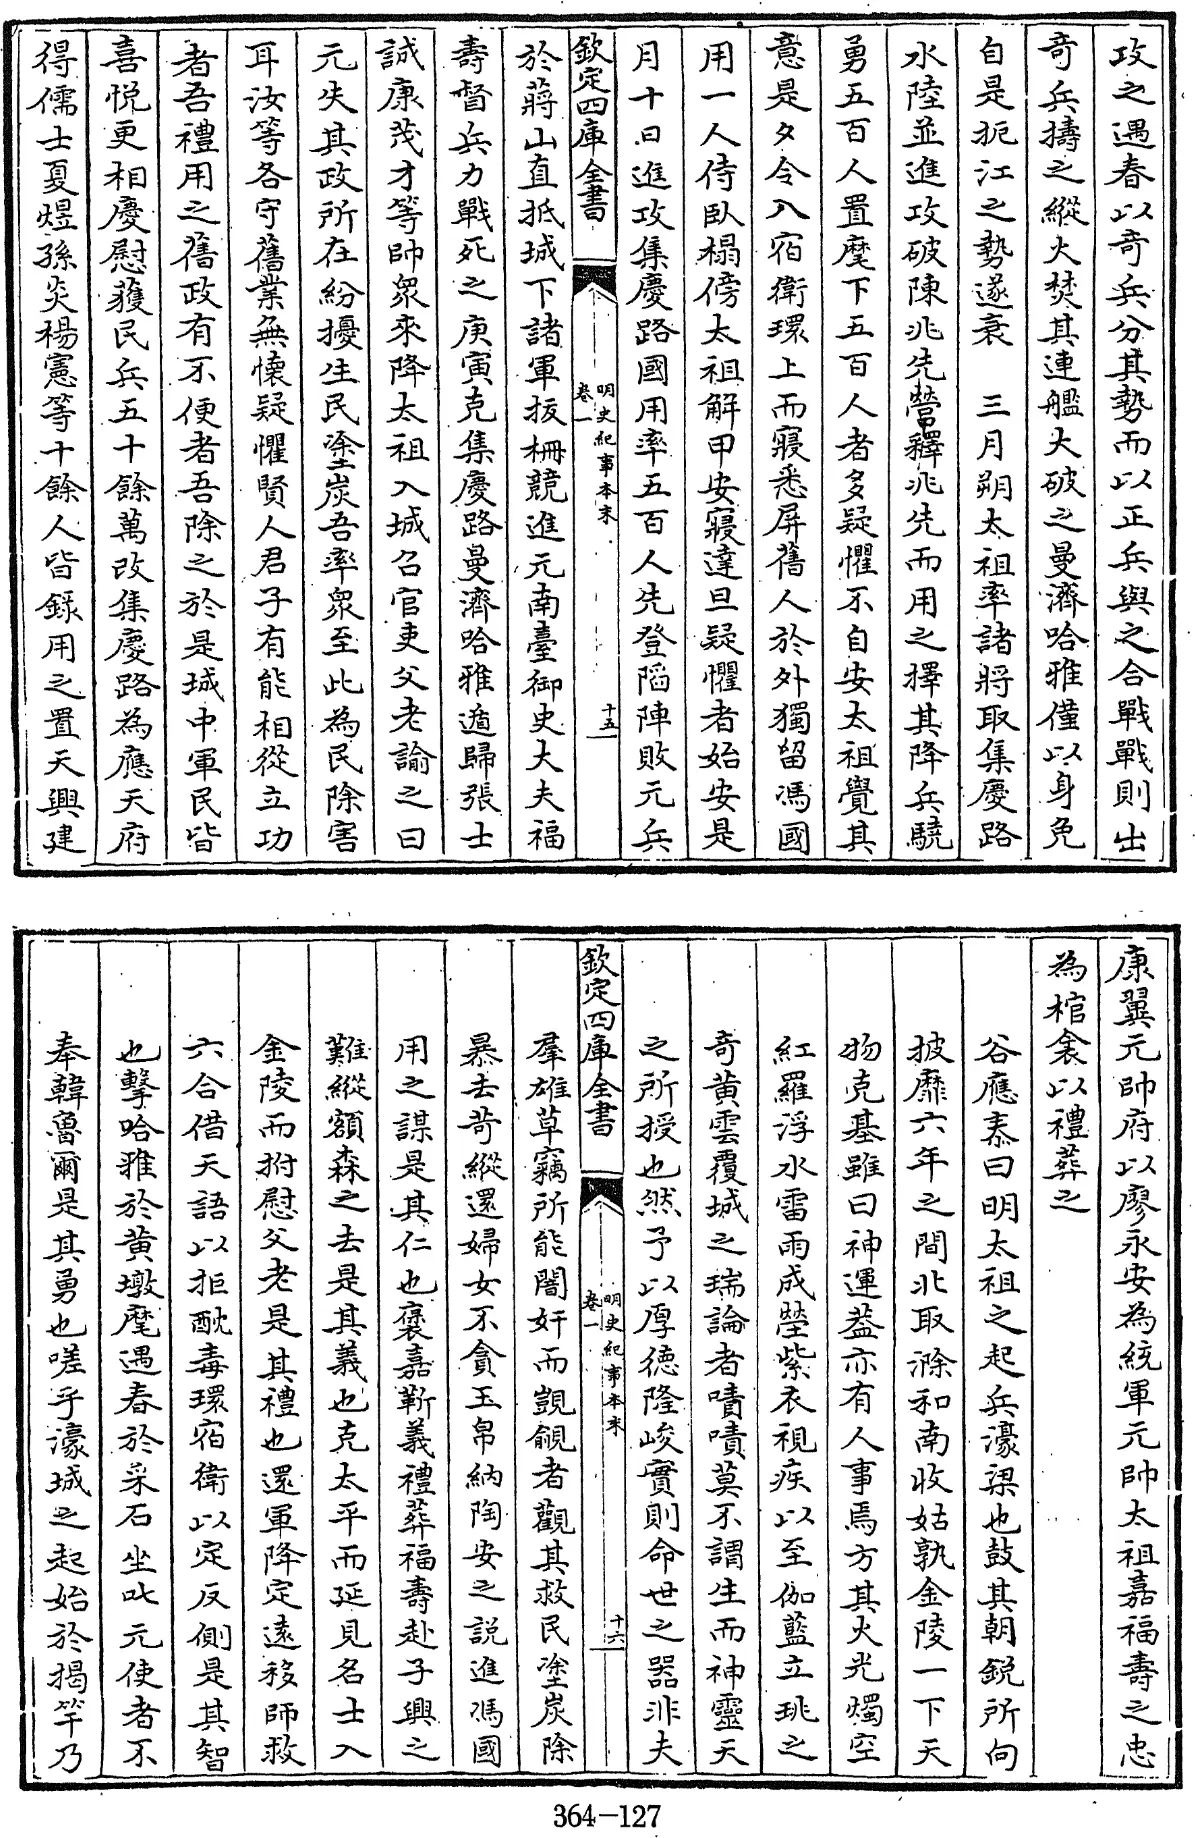 攻之遇春以奇兵分其勢而以正兵與之合戰戰則出
奇兵擣之縱火焚其連艦大破之曼濟哈雅僅以身免
自是扼江之勢遂衰　三月朔太祖率諸將取集慶路
水陸並進攻破陳兆先營釋兆先而用之擇其降兵驍
勇五百人置麾下五百人者多疑懼不自安太祖覺其
意是夕令入宿衛環上而寢悉屏舊人於外獨留馮國
用一人侍臥榻傍太祖解甲安寢達旦疑懼者始安是
月十日進攻集慶路國用率五百人先登陷陣敗元兵
欽定四庫全書
明史紀事本末
卷一
十五
於蔣山直抵城下諸軍拔柵競進元南臺御史大夫福
壽督兵力戰死之庚寅克集慶路曼濟哈雅遁歸張士
誠康茂才等帥衆來降太祖入城召官吏父老諭之曰
元失其政所在紛擾生民塗炭吾率衆至此為民除害
耳汝等各守舊業無懷疑懼賢人君子有能相從立功
者吾禮用之舊政有不便者吾除之於是城中軍民皆
喜悅更相慶慰獲民兵五十餘萬改集慶路為應天府
得儒士夏煜孫炎楊憲等十餘人皆錄用之置天興建
康翼元帥府以廖永安為統軍元帥太祖嘉福壽之忠
為棺衾以禮葬之
谷應泰曰明太祖之起兵濠梁也鼓其朝銳所向
披靡六年之間北取滁和南收姑孰金陵一下天
物克基雖曰神運蓋亦有人事焉方其火光燭空
紅羅浮水雷雨成塋紫衣視疾以至伽藍立珓之
奇黃雲覆城之瑞論者嘖嘖莫不謂生而神靈天
之所授也然予以厚德隆峻實則命世之器非夫
欽定四庫全書
明史紀事本末
卷一
十六
羣雄草竊所能闇奸而覬覦者觀其救民塗炭除
暴去苛縱還婦女不貪玉帛納陶安之説進馮國
用之謀是其仁也褒嘉靳義禮葬福壽赴子興之
難縱額森之去是其義也克太平而延見名士入
金陵而拊慰父老是其禮也還軍降定遠移師救
六合借天語以拒酖毒環宿衛以定反側是其智
也擊哈雅於黃墩麾遇春於采石坐叱元使者不
奉韓魯爾是其勇也嗟乎濠城之起始於揭竿乃
364-127